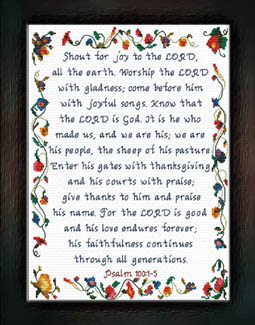 Shout for joy to the LORD,
all the earth. Worship the LORD
with gladness; come before him
with joyful songs. Know that
the LORD is God. It is he who
made us, and we are his; we are
his people, the sheep of his pasture.
Enter his gates with thanksgiving
and his courts with praise;
give thanks to him and praise
his name. For the LORD is good
and his love endures forever;
his faithfulness continues
through all generations.
Psalm 100:1-5